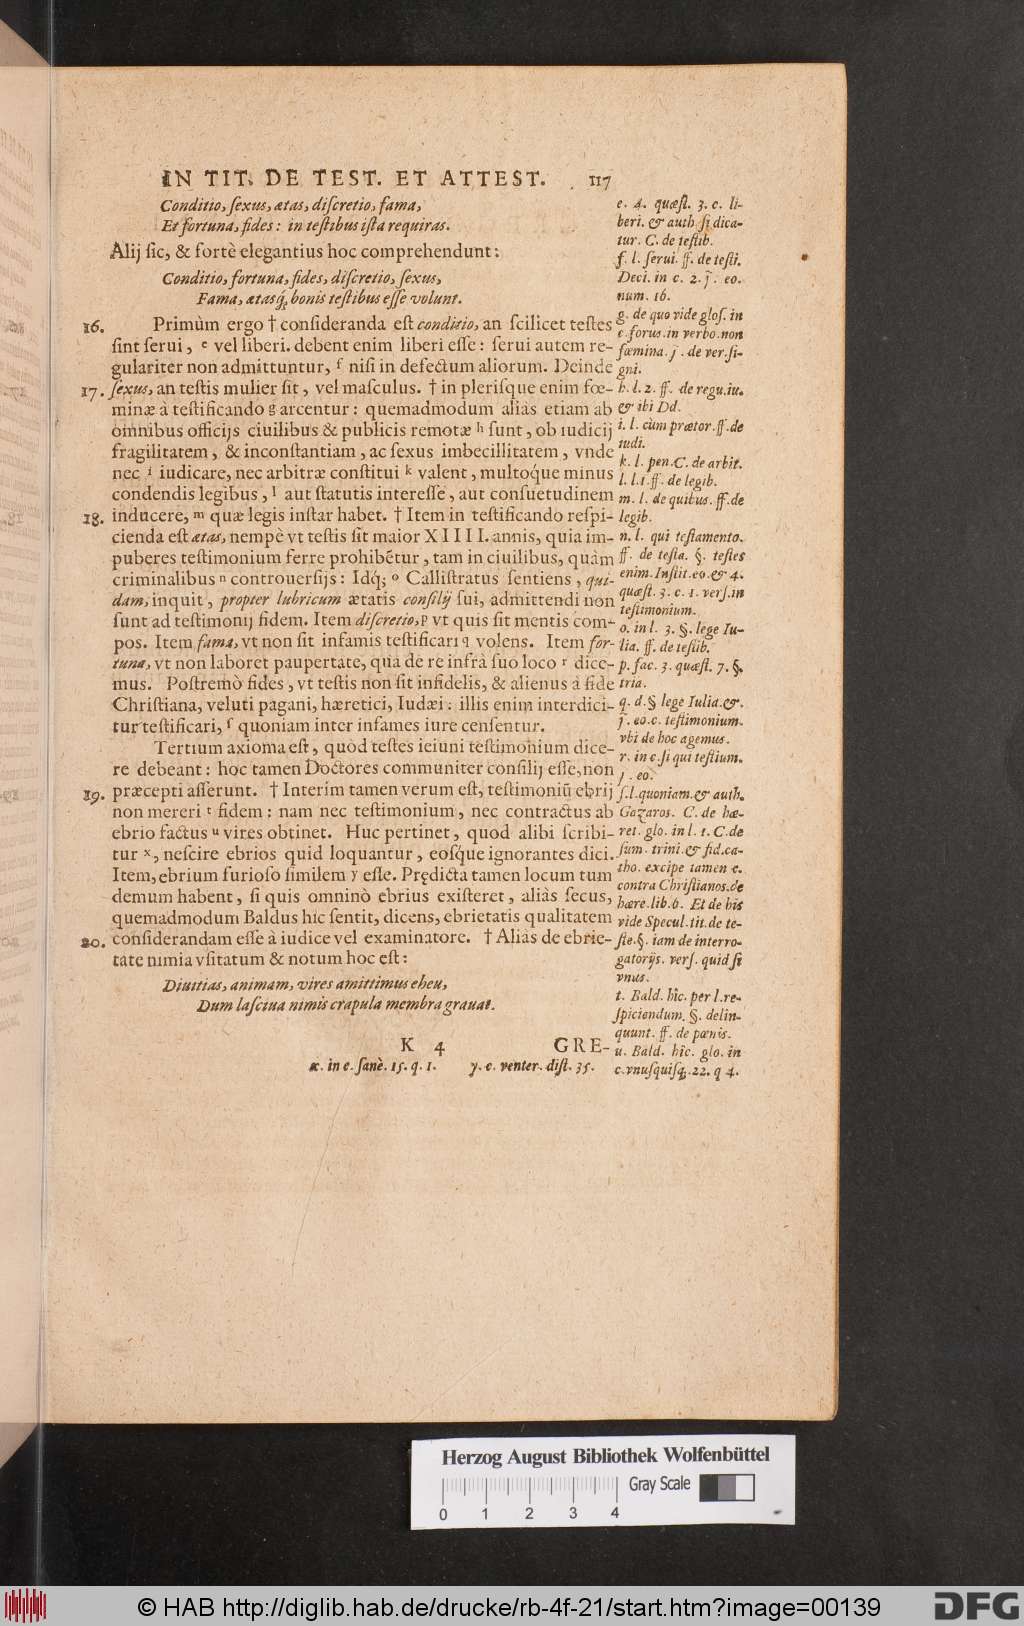 IN TIT. DE TEST. ET ATTEST. 117
Conditio, sexus, ætas, discretio, fama,
Et fortuna, fides: in testibus ista requiras.
Alij sic, & fortè elegantius hoc comprehendunt:
Conditio, fortuna, fides, discretio, sexus,
Fama, ætasq́, bonis testibus esse volunt.
16. Primùm ergo † consideranda est conditio, an scilicet testes
sint serui, e vel liberi. debent enim liberi esse: serui autem re-
gulariter non admittuntur, f nisi in defectum aliorum. Deinde
17. sexus, an testis mulier sit, vel masculus. † in plerisque enim fœ-
minæ à testificando g arcentur: quemadmodum aliàs etiam ab
omnibus officijs ciuilibus & publicis remotæ h sunt, ob iudicij
fragilitatem, & inconstantiam, ac sexus imbecillitatem, vnde
nec i iudicare, nec arbitræ constitui k valent, multoq́ue minus
condendis legibus, l aut statutis interesse, aut consuetudinem
18. inducere, m quæ legis instar habet. † Item in testificando respi-
cienda est ætas, nempè vt testis sit maior XIIII. annis, quia im-
puberes testimonium ferre prohibētur, tam in ciuilibus, quàm
criminalibus n controuersijs: Idq́; o Callistratus sentiens, qui-
dam, inquit, propter lubricum ætatis consilij sui, admittendi non
sunt ad testimonij fidem. Item discretio, p vt quis sit mentis com-
pos. Item fama, vt non sit infamis testificari q volens. Item for-
tuna, vt non laboret paupertate, qua de re infrà suo loco r dice-
mus. Postremò fides, vt testis non sit infidelis, & alienus à fide
Christiana, veluti pagani, hæretici, Iudæi: illis enim interdici-
tur testificari, s quoniam inter infames iure censentur.
Tertium axioma est, quòd testes ieiuni testimonium dice-
re debeant: hoc tamen Doctores communiter consilij esse, non
19. præcepti asserunt. † Interim tamen verum est, testimoniū ebrij
non mereri t fidem: nam nec testimonium, nec contractus ab
ebrio factus u vires obtinet. Huc pertinet, quod alibi scribi-
tur x, nescire ebrios quid loquantur, eosq́ue ignorantes dici.
Item, ebrium furioso similem y esse. Prędicta tamen locum tum
demum habent, si quis omninò ebrius existeret, aliàs secus,
quemadmodum Baldus hîc sentit, dicens, ebrietatis qualitatem
20. considerandam esse à iudice vel examinatore. † Aliàs de ebrie-
tate nimia vsitatum & notum hoc est:
Diuitias, animam, vires amittimus eheu,
Dum lasciua nimis crapula membra grauat.
K 4 GRE-
x. in c. sanè. 15. q. 1. y. c. venter. dist. 35.
e. 4. quæst. 3. c. li-
beri. & auth. si dica-
tur. C. de testib.
f. l. serui. ff. de testi.
Deci. in c. 2. j. eo.
num. 16.
g. de quo vide glos. in
c. forus. in verbo. non
fœmina. j. de ver. si-
gni.
h. l. 2. ff. de regu. iu.
& ibi Dd.
i. l. cùm prætor. ff. de
iudi.
k. l. pen. C. de arbit.
l. l. 1. ff. de legib.
m. l. de quibus. ff. de
legib.
n. l. qui testamento.
ff. de testa. §. testes
enim. Instit. eo. & 4.
quæst. 3. c. 1. vers. in
testimonium.
o. in l. 3. §. lege Iu-
lia. ff. de testib.
p. fac. 3. quæst. 7. §.
tria.
q. d. § lege Iulia. &.
j. eo. c. testimonium.
vbi de hoc agemus.
r. in c. si qui testium.
j. eo.
s. l. quoniam. & auth.
Gazaros. C. de hæ-
ret. glo. in l. 1. C. de
sum. trini. & fid. ca-
tho. excipe tamen c.
contra Christianos. de
hære. lib. 6. Et de his
vide Specul. tit. de te-
ste. §. iam de interro-
gatorijs. vers. quid si
vnus.
t. Bald. hîc. per l. re-
spiciendum. §. delin-
quunt. ff. de pœnis.
u. Bald. hîc. glo. in
c. vnusquisq́. 22. q 4.
Herzog August Bibliothek Wolfenbüttel
Gray Scale
0 1 2 3 4
© HAB http://diglib.hab.de/drucke/rb-4f-21/start.htm?image=00139
DFG